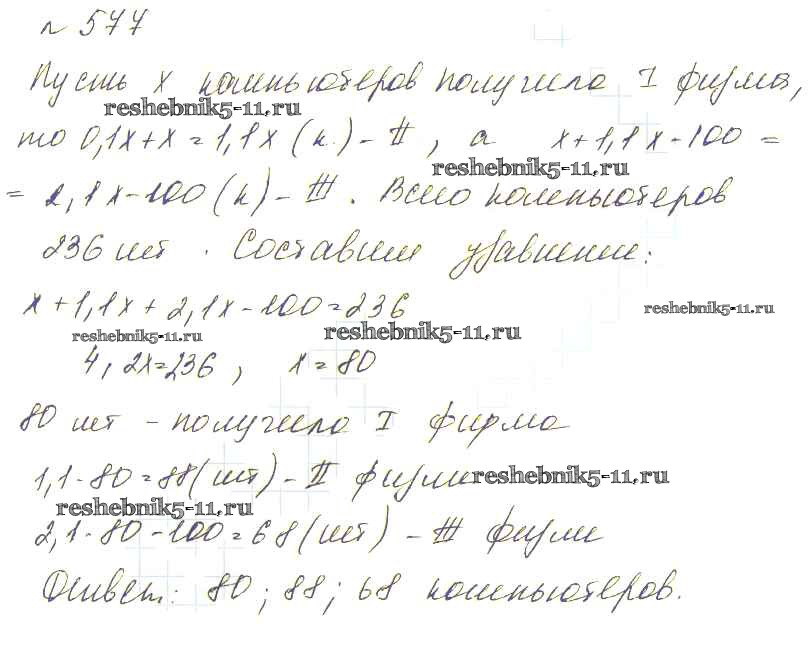 № 577
Пусть x компьютеров получила I фирма,
reshebnik5-11.ru
то 0,1x+x=1,1x (к.) - II, а x+1,1x-100=
reshebnik5-11.ru
= 2,1x-100 (к) - III. Всего компьютеров
236 шт. Составим уравнение:
x+1,1x+2,1x-100=236
reshebnik5-11.ru
reshebnik5-11.ru
reshebnik5-11.ru
4,2x=236, x=80
80 шт - получила I фирма
1,1·80=88 (шт) - II фирма
reshebnik5-11.ru
reshebnik5-11.ru
2,1·80-100=68 (шт) - III фирма
Ответ: 80; 88; 68 компьютеров.